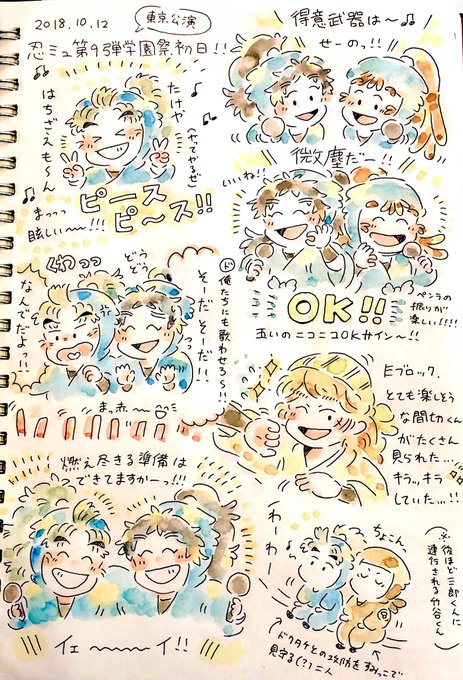 2018.10.12
東京公演
忍ミュ第9弾学園祭初日!!
たけや
はちざえも〜ん
(やってやるぜ)
ピース
ピ〜ス!!
まっっっ
眩しい〜〜!!!
くわっっ
どうどう
なんでだよっ!!
そーだそーだ!!
㋣俺たちにも歌わせろ〜!!
まっ赤〜〜
燃え尽きる準備は
できてますかーっ!!!
イェ〜〜〜イ!!
得意武器は〜♫
せーのっ!!
微塵だー!!
いいね!!
OK!!
ペンラの
振りが
楽しい!!!!
互いのニコニコOKサイン〜!!
Eブロック、
とても楽しそう
な間切くん
がたくさん
見られた…
キラッ、キラ
していた…!!
わーわー
ちょこん
ドクタケとの攻防をすみっこで
見守る(?)二人
(※後ほど三郎くんに
連行される竹谷くん)